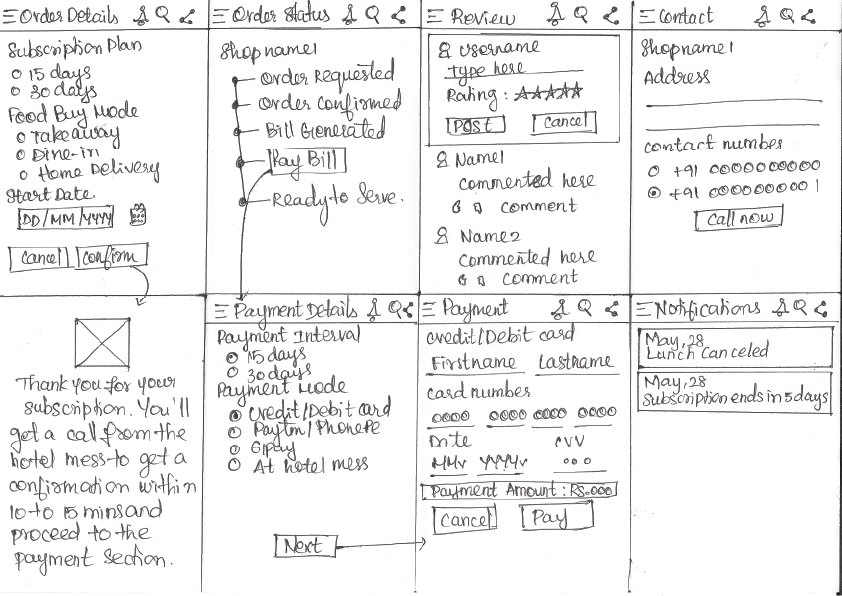 Order Details
Subscription Plan
15 days
30 days
Food Buy Mode
Takeaway
Dine-in
Home Delivery
Start Date
DD/MM/YYYY
Cancel Confirm
Order Status
Shopname1
Order Requested
Order Confirmed
Bill Generated
Pay Bill
Ready to Serve.
Review
Username
type here
Rating:
Post Cancel
Name1
commented here
comment
Name2
commented here
comment
Contact
Shopname1
Address
contact number
+91 0000000000
+91 0000000001
Call now
Thank you for your
subscription. You'll
get a call from the
hotel mess to get a
confirmation within
10 to 15 mins and
proceed to the
payment section.
Payment Details
Payment Interval
15 days
30 days
Payment Mode
Credit/Debit card
Paytm/Phonepe
Gpay
At hotel mess
Next
Payment
Credit/Debit card
Firstname Lastname
card number
0000 0000 0000 0000
Date CVV
MM YYYY 000
Payment Amount: RS.000
Cancel Pay
Notifications
May, 28
Lunch Canceled
May, 28
Subscription ends in 5 days